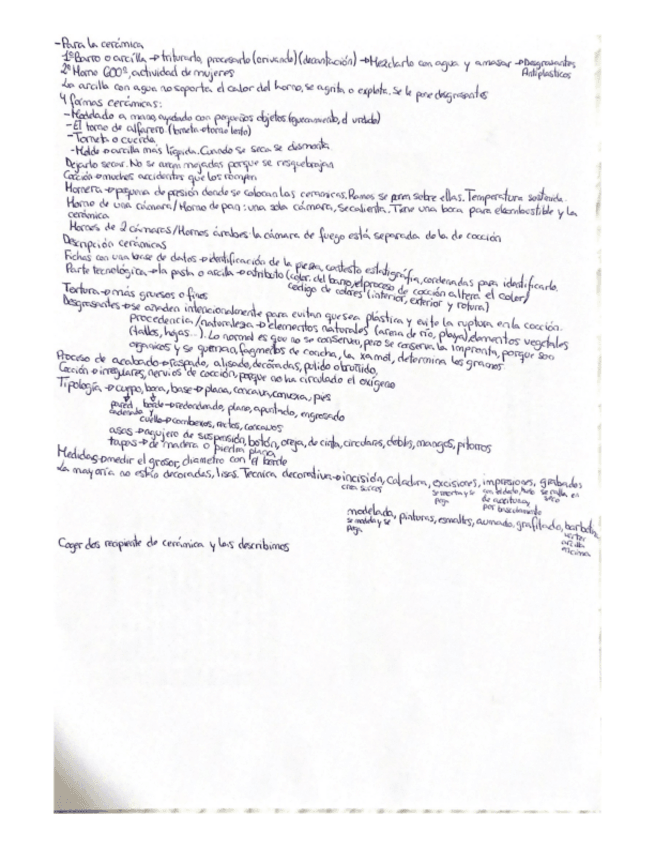 -Para la cerámica
1º Barro o arcilla → triturarlo, procesarlo (crivando) (decantación) → Mezclarlo con agua y amasar → Desgrasantes
Antiplasticos
2º Horno 600º, actividad de mujeres
La arcilla con agua no soporta el calor del horno, se agrita o explota. Se le pone desgrasantes
4 formas cerámicas:
-Modelado a mano, ayudado con pequeños objetos (, el urdido)
-El torno de alfarero (torneta otorno lento)
-Torneta o cuerda
-Molde → arcilla más líquida. Cuando se seca se desmonta
Dejarlo secar. No se meten mojadas porque se resquebrajan
Cocción → muchos accidentes que los rompen
Hornera → pequeña de presión donde se colocan las ceramicas. Ramas se ponen sobre ellas. Temperatura sostenida.
Horno de una cámara / Horno de pan: una sola cámara, se calienta. Tiene una boca para el combustible y la
cerámica
Hornos de 2 cámaras / Hornos árabes: la cámara de fuego está separada de la de cocción
Descripción cerámicas
Fichas con una base de datos → identificación de la pieza, contexto estratigráfia, coordenadas para identificarlo.
Parte tecnológica → la pasta o arcilla → atributo (color del barro, el proceso de cocción altera el color)
codigo de colores (interior, exterior y rotura)
Textura → más gruesos o finos
Desgrasantes → se añaden intencionalmente para evitar que sea plástica y evita la ruptura en la cocción.
Procedencia / naturaleza → elementos naturales (arena de río, playa) elementos vegetales
(tallos, hojas...). Lo normal es que no se conserven, pero se conserva la imprenta, porque son
organicos y se queman, fragmentos de concha, la xamot, determina los gramos.
Proceso de acabado → raspado, alisado, decoradas, pulido o bruñido.
Cocción → irregulares, nervios de cocción, porque no ha circulado el oxígeno
Tipología → cuerpo, boca, base → plana, concava, convexa, pies
pared, borde → redondeado, plano, apuntado, engrosado
cuello → convexos, rectos, concavos
asas → agujero de suspensión, botón, oreja, de cinta, circulares, dobles, mangos, pitorros
tapas → de madera o piedra plana
Medidas → medir el grosor, diametro con el borde
La mayoría no están decoradas, lisas. Tecnica decorativa → incisión, caladura, excisiones, impresiones, grabados
crea surcos se y se pega con el dedo, de por se ralla en seco
modelado, pinturas, esmaltes, aumado, grafitado, barbotina
se modela y se pega verter arcilla encima
Coger dos recipiente de cerámica y las describimos